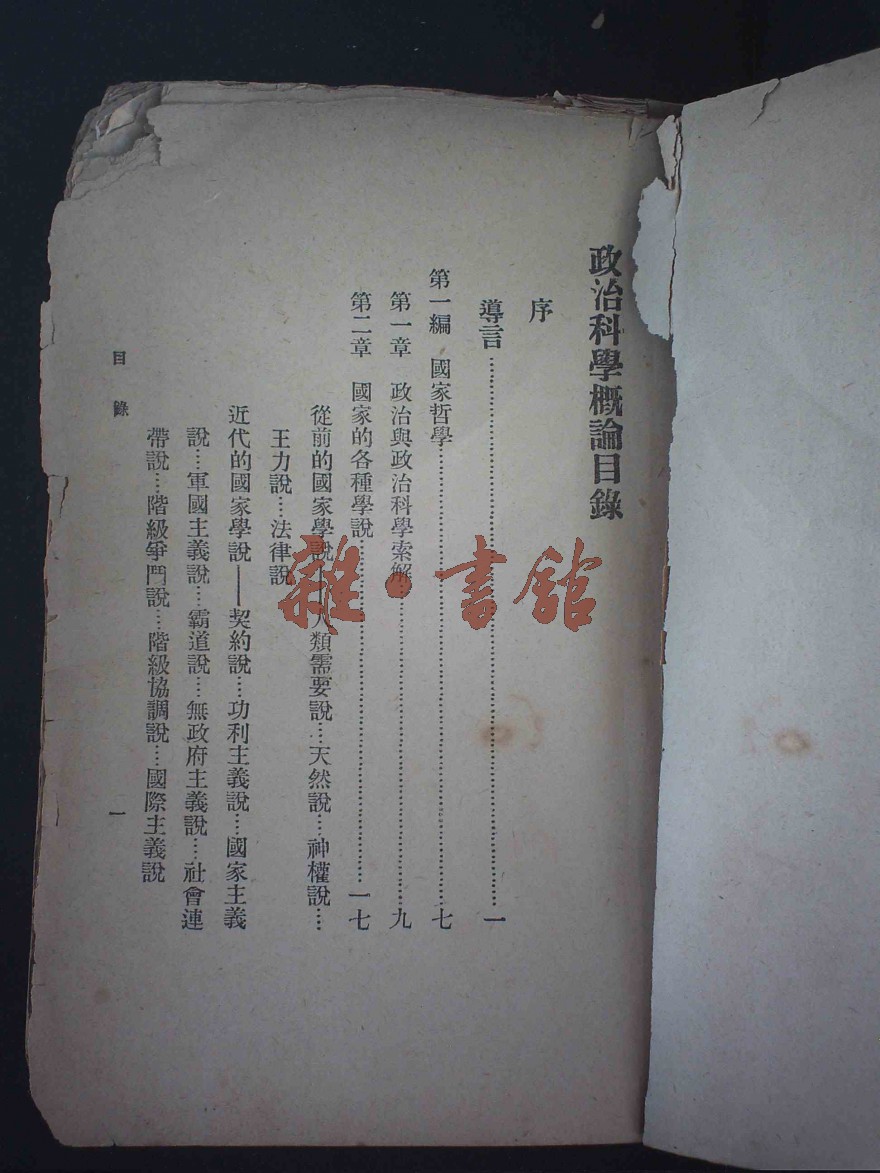 政治科學概論目錄
序
導言……………………一
第一編　國家哲學……………………七
第一章　政治與政治科學索解……………………九
第二章　國家的各種學說……………………一七
從前的國家學說——人類需要說…天然說…神權說…
王力說…法律說
近代的國家學說——契約說…功利主義說…國家主義
說…軍國主義說…霸道說…無政府主義說…社會連
帶說…階級爭鬥說…階級協調說…國際主義說
目錄
一
雜·書館